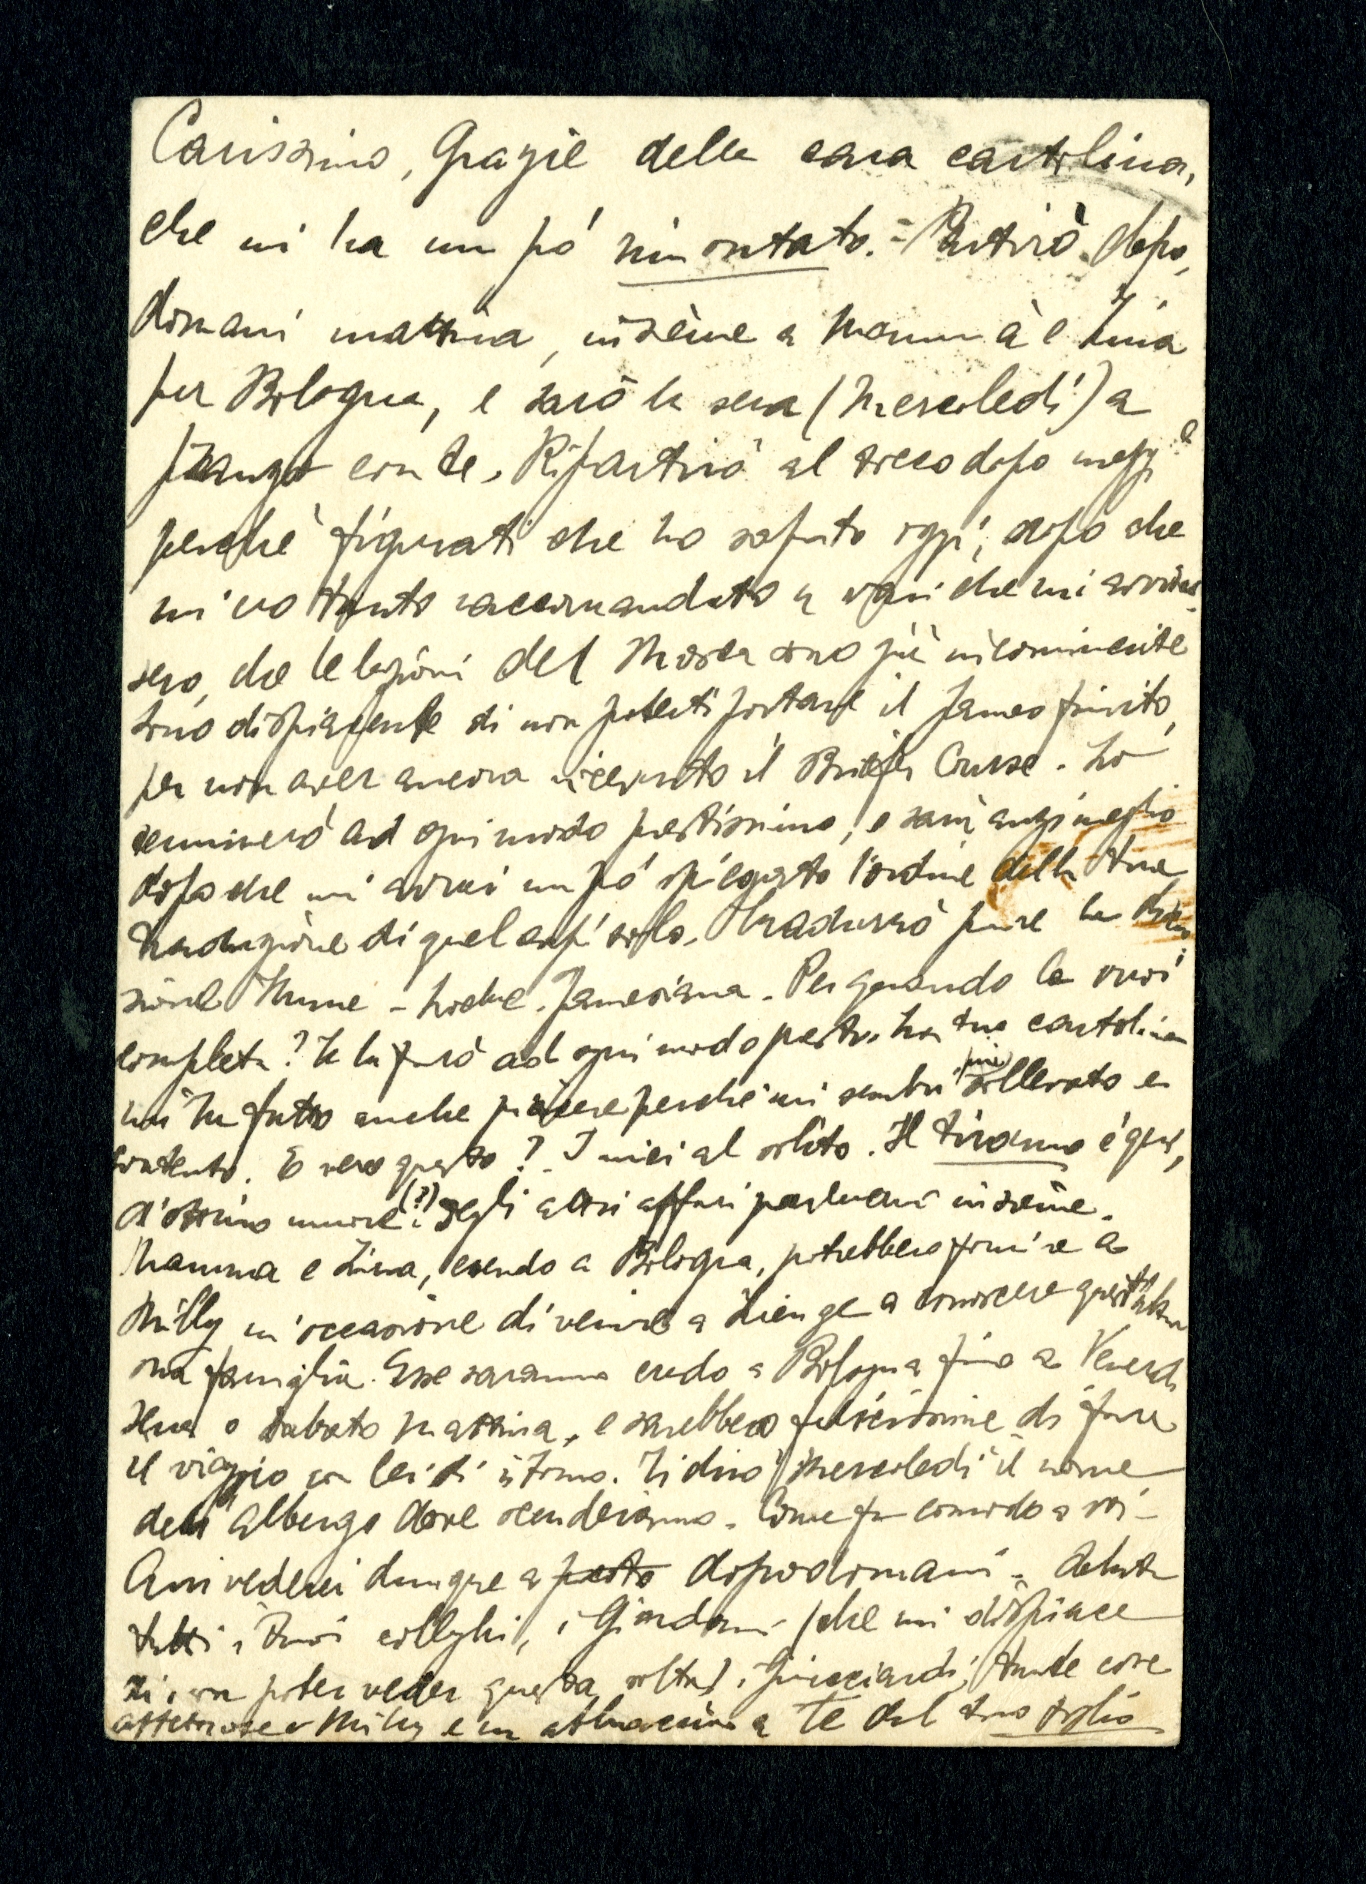 Carissimo, Grazie della cara cartolina,
che mi ha un pó rimontato. = Partirò dopo,
domani mattina, insieme a Mammà e Lina
per Bologna, e sarò la sera (Mercoledi) a
pranzo con te. Ripartirò al tocco dopo mezzi
perchè figurati che ho saputo oggi, dopo che
mi ero tanto raccomandato a vari che mi avvertis-
sero, che le lezioni del Morea sono già incominciate
Sono dispiacente di non poterti portare il James finito,
per non aver ancora ricevuto il Briefer Course. Lo
terminerò ad ogni modo prestissimo, e sarà anzi meglio
dopo che mi avrai un pó spiegato l'ordine della tua
traduzione di quel capitolo. Tradurrò pure la
Hume - Locke - Jamesiana. Per quando la vuoi
completa? Te la farò ad ogni modo presto. La tua cartolina
mi ha fatto anche piacere perchè mi sembri più sollevato e
contento. E vero questo? I miei al solito. Il tiranno è qui,
d'ottimo umore (?) Degli altri affari parleremo insieme.
Mamma e Lina, essendo a Bologna, potrebbero fornire a
Milly un'occasione di venire a Firenze a conoscere
sua famiglia. Esse saranno credo a Bologna fino a Venerdi
sera o sabato mattina, e sarebbero felicissime di fare
il viaggio con lei di ritorno. Ti dirò mercoledì il nome
dell'albergo dove scenderanno. Come fa comodo a voi -
Arrivederci dunque a presto dopodomani. Saluta
tutti i tuoi colleghi, i Giordani (che mi dispiace
di non poter veder questa volta) i Guicciardi; tante cose
affettuose a Milly e un abbraccio a Te dal tuo figlio